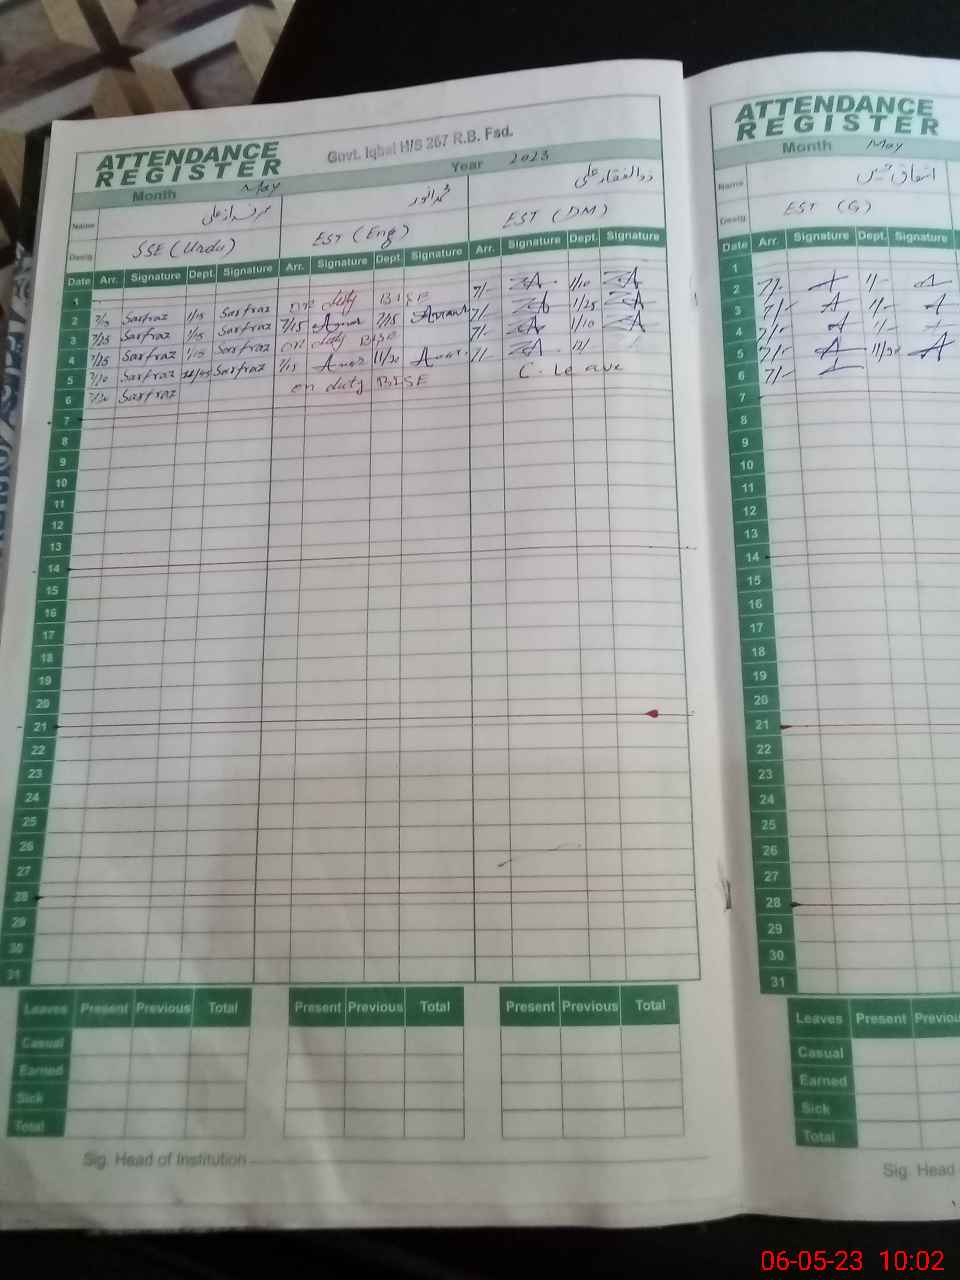 Govt. Iqbal H/S 267 R.B. Fsd.
ATTENDANCE
REGISTER
Month May Year 2023
Name محمد انور ذوالفقار علی
Desig. SSE (Urdu) EST (Eng) EST (DM)
Date Arr. Signature Dept. Signature Arr. Signature Dept. Signature Arr. Signature Dept. Signature
1
2 Sarfraz 1/15 Sarfraz on duty BISE 7/- ZA 1/10 ZA
3 7/25 Sarfraz 1/15 Sarfraz 7/15 7/15 7/- ZA 1/25 ZA
4 7/25 Sarfraz 1/15 Sarfraz on duty BISE 7/- ZA 1/10 ZA
5 7/10 Sarfraz Sarfraz 7/15 11/30 7/- ZA
6 7/20 Sarfraz on duty BISE C. Leave
7
8
9
10
11
12
13
14
15
16
17
18
19
20
21
22
23
24
25
26
27
28
29
30
31
Leaves Present Previous Total Present Previous Total Present Previous Total
Casual
Earned
Sick
Total
Sig. Head of Institution
ATTENDANCE
REGISTER
Month May
Name
Desig. EST (G)
Date Arr. Signature Dept. Signature
1
2 7/- A 1/- A
3 7/- A 1/- A
4 7/- A 1/-
5 7/- A 11/30 A
6 7/-
7
8
9
10
11
12
13
14
15
16
17
18
19
20
21
22
23
24
25
26
27
28
29
30
31
Leaves Present Previou
Casual
Earned
Sick
Total
Sig. Head
06-05-23 10:02